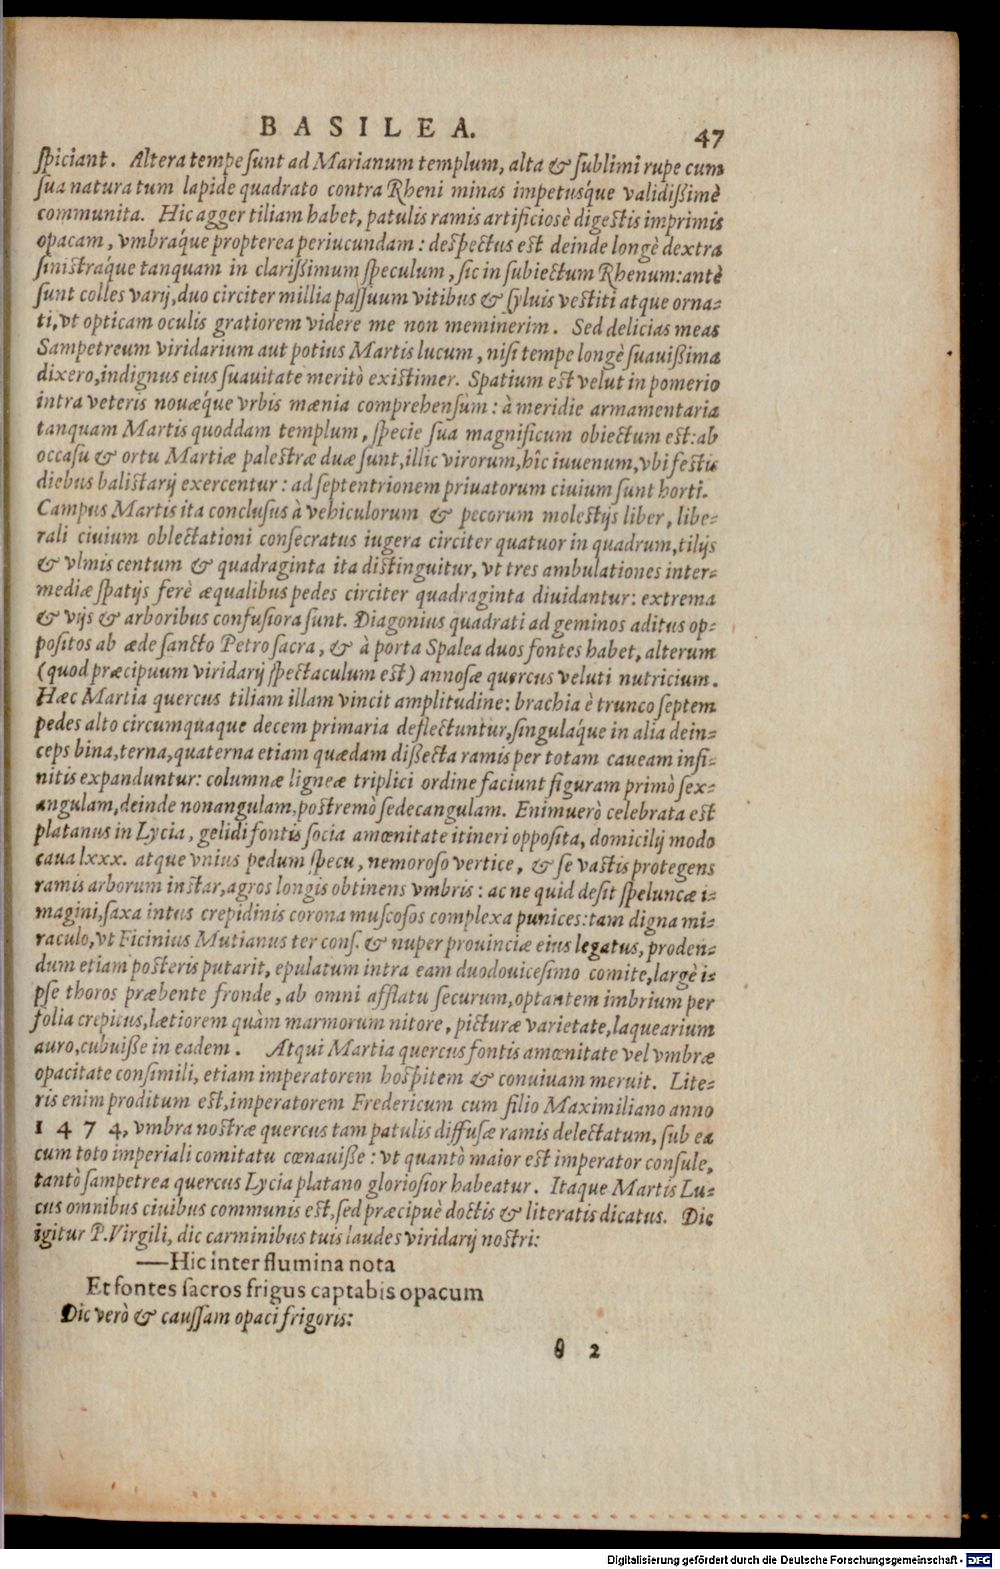 BASILEA. 47
ſpiciant. Altera tempe ſunt ad Marianum templum, alta & ſublimi rupe cum
ſua natura tum lapide quadrato contra Rheni minas impetusq́ue validißimè
communita. Hic agger tiliam habet, patulis ramis artificiosè digeſtis imprimis
opacam, vmbraq́ue propterea periucundam: deſpectus eſt deinde longè dextra
ſiniſtraq́ue tanquam in clarißimum ſpeculum, ſic in ſubiectum Rhenum: antè
ſunt colles varij, duo circiter millia paſſuum vitibus & ſyluis veſtiti atque orna-
ti, vt opticam oculis gratiorem videre me non meminerim. Sed delicias meas
Sampetreum viridarium aut potius Martis lucum, niſi tempe longè ſuauißima
dixero, indignus eius ſuauitate meritò exiſtimer. Spatium eſt velut in pomerio
intra veteris nouæq́ue vrbis mœnia comprehenſum: à meridie armamentaria
tanquam Martis quoddam templum, ſpecie ſua magnificum obiectum eſt: ab
occaſu & ortu Martiæ palæſtræ duæ ſunt, illic virorum, hîc iuuenum, vbi feſtis
diebus baliſtarij exercentur: ad ſeptentrionem priuatorum ciuium ſunt horti.
Campus Martis ita concluſus à vehiculorum & pecorum moleſtijs liber, libe-
rali ciuium oblectationi conſecratus iugera circiter quatuor in quadrum, tilijs
& vlmis centum & quadraginta ita diſtinguitur, vt tres ambulationes inter-
mediæ ſpatijs ferè æqualibus pedes circiter quadraginta diuidantur: extrema
& vijs & arboribus confuſiora ſunt. Diagonius quadrati ad geminos aditus op-
poſitos ab æde ſancto Petro ſacra, & à porta Spalea duos fontes habet, alterum
(quod præcipuum viridarij ſpectaculum eſt) annoſæ quercus veluti nutricium.
Hæc Martia quercus tiliam illam vincit amplitudine: brachia è trunco ſeptem
pedes alto circumquaque decem primaria deflectuntur, ſingulaq́ue in alia dein-
ceps bina, terna, quaterna etiam quædam dißecta ramis per totam caueam infi-
nitis expanduntur: columnæ ligneæ triplici ordine faciunt figuram primò ſex-
angulam, deinde nonangulam, poſtremò ſedecangulam. Enimuerò celebrata eſt
platanus in Lycia, gelidi fontis ſocia amœnitate itineri oppoſita, domicilij modo
caua lxxx. atque vnius pedum ſpecu, nemoroſo vertice, & ſe vaſtis protegens
ramis arborum inſtar, agros longis obtinens vmbris: ac ne quid deſit ſpeluncæ i-
magini, ſaxa intus crepidinis corona muſcoſos complexa punices: tam digna mi-
raculo, vt Ficinius Mutianus ter conſ. & nuper prouinciæ eius legatus, proden-
dum etiam poſteris putarit, epulatum intra eam duodouiceſimo comite, largè i-
pſe thoros præbente fronde, ab omni afflatu ſecurum, optantem imbrium per
folia crepitus, lætiorem quàm marmorum nitore, picturæ varietate, laquearium
auro, cubuiße in eadem. Atqui Martia quercus fontis amœnitate vel vmbræ
opacitate conſimili, etiam imperatorem hoſpitem & conuiuam meruit. Lite-
ris enim proditum eſt, imperatorem Fredericum cum filio Maximiliano anno
1474, vmbra noſtræ quercus tam patulis diffuſæ ramis delectatum, ſub ea
cum toto imperiali comitatu cœnauiße: vt quantò maior eſt imperator conſule,
tantò ſampetrea quercus Lycia platano glorioſior habeatur. Itaque Martis Lu-
cus omnibus ciuibus communis eſt, ſed præcipuè doctis & literatis dicatus. Dic
igitur P. Virgili, dic carminibus tuis laudes viridarij noſtri:
—Hic inter flumina nota
Et fontes ſacros frigus captabis opacum
Dic verò & cauſſam opaci frigoris:
g 2
Digitalisierung gefördert durch die Deutsche Forschungsgemeinschaft - DFG